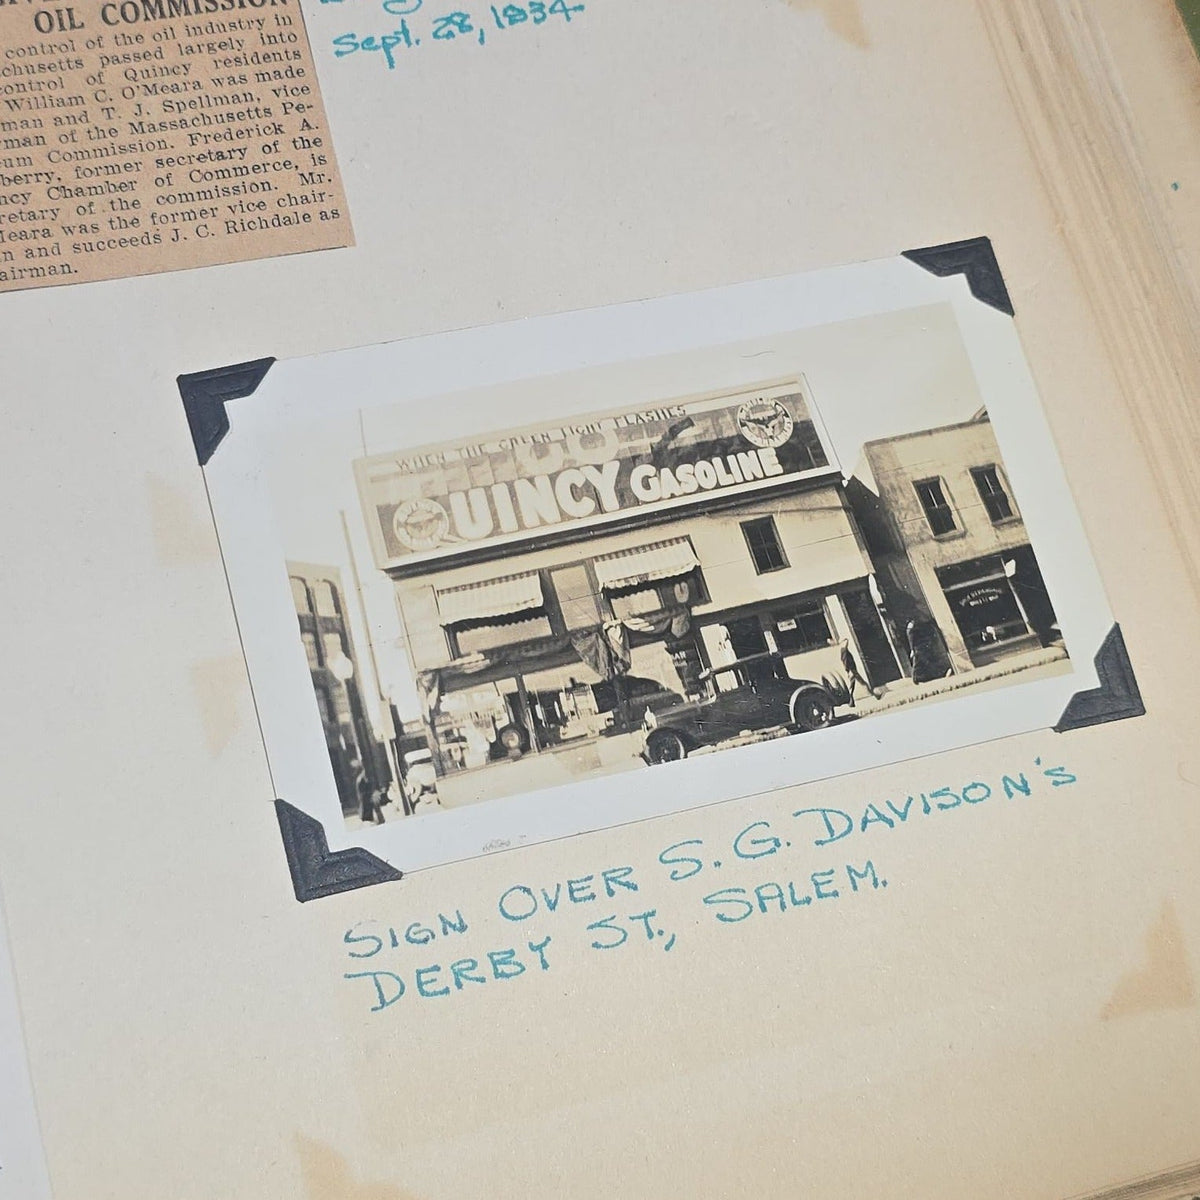 OIL COMMISSION
control of the oil industry in
chusetts passed largely into
control of Quincy residents
William C. O'Meara was made
man and T. J. Spellman, vice
man of the Massachusetts Pe-
um Commission. Frederick A.
berry, former secretary of the
ncy Chamber of Commerce, is
retary of the commission. Mr.
Meara was the former vice chair-
n and succeeds J. C. Richdale as
airman.
Sept. 28, 1934.
WHEN THE GREEN LIGHT FLASHES
GO
QUINCY GASOLINE
SIGN OVER S. G. DAVISON'S
DERBY ST., SALEM.